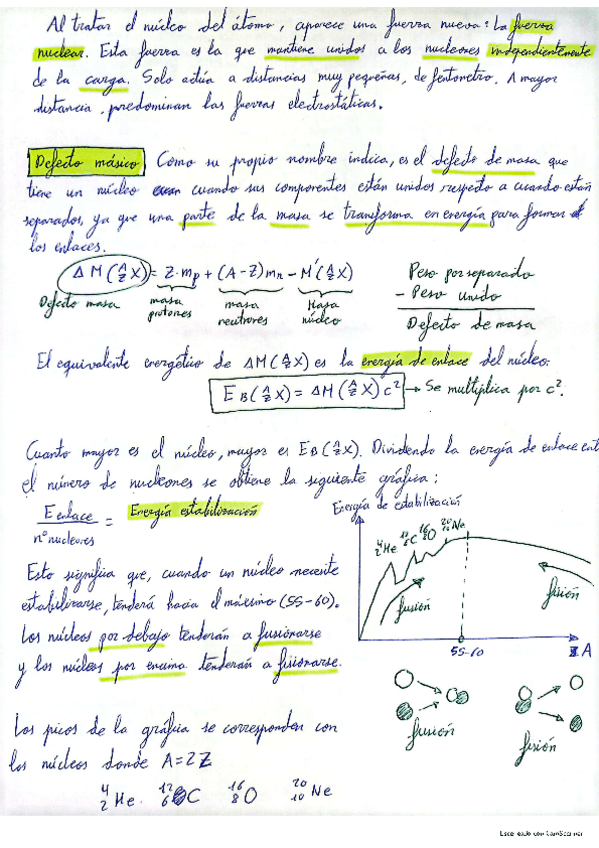 Al tratar el núcleo del átomo, aparece una fuerza nueva: La fuerza
nuclear. Esta fuerza es la que mantiene unidos a los nucleones independientemente
de la carga. Solo actúa a distancias muy pequeñas, de femtometro. A mayor
distancia, predominan las fuerzas electrostáticas.
Defecto másico Como su propio nombre indica, es el defecto de masa que
tiene un núcleo cuando sus componentes están unidos respecto a cuando están
separados, ya que una parte de la masa se transforma en energía para formar
los enlaces.
ΔM(ᴬ_Z X) = Z·mp + (A-Z)mn - M'(ᴬ_Z X)
Defecto masa
masa protones
masa neutrones
Masa núcleo
Peso por separado
- Peso unido
Defecto de masa
El equivalente energético de ΔM(ᴬ_Z X) es la energía de enlace del núcleo:
E_B(ᴬ_Z X) = ΔM(ᴬ_Z X)c² → Se multiplica por c².
Cuanto mayor es el núcleo, mayor es E_B(ᴬ_Z X). Dividendo la energía de enlace ent
el número de nucleones se obtiene la siguiente gráfica:
E enlace / nº nucleones = Energía estabilización
Energía de estabilización
⁴₂He ¹²₆C ¹⁶₈O ²⁰₁₀Ne
fusión
fisión
55-60
A
Esto significa que, cuando un núcleo necesite
estabilizarse, tenderá hacia el máximo (55-60).
Los núcleos por debajo tenderán a fusionarse
y los núcleos por encima tenderán a fisionarse.
fusión
fisión
Los picos de la gráfica se corresponden con
los núcleos donde A=2Z
⁴₂He ¹²₆C ¹⁶₈O ²⁰₁₀Ne
Escaneado con CamScanner